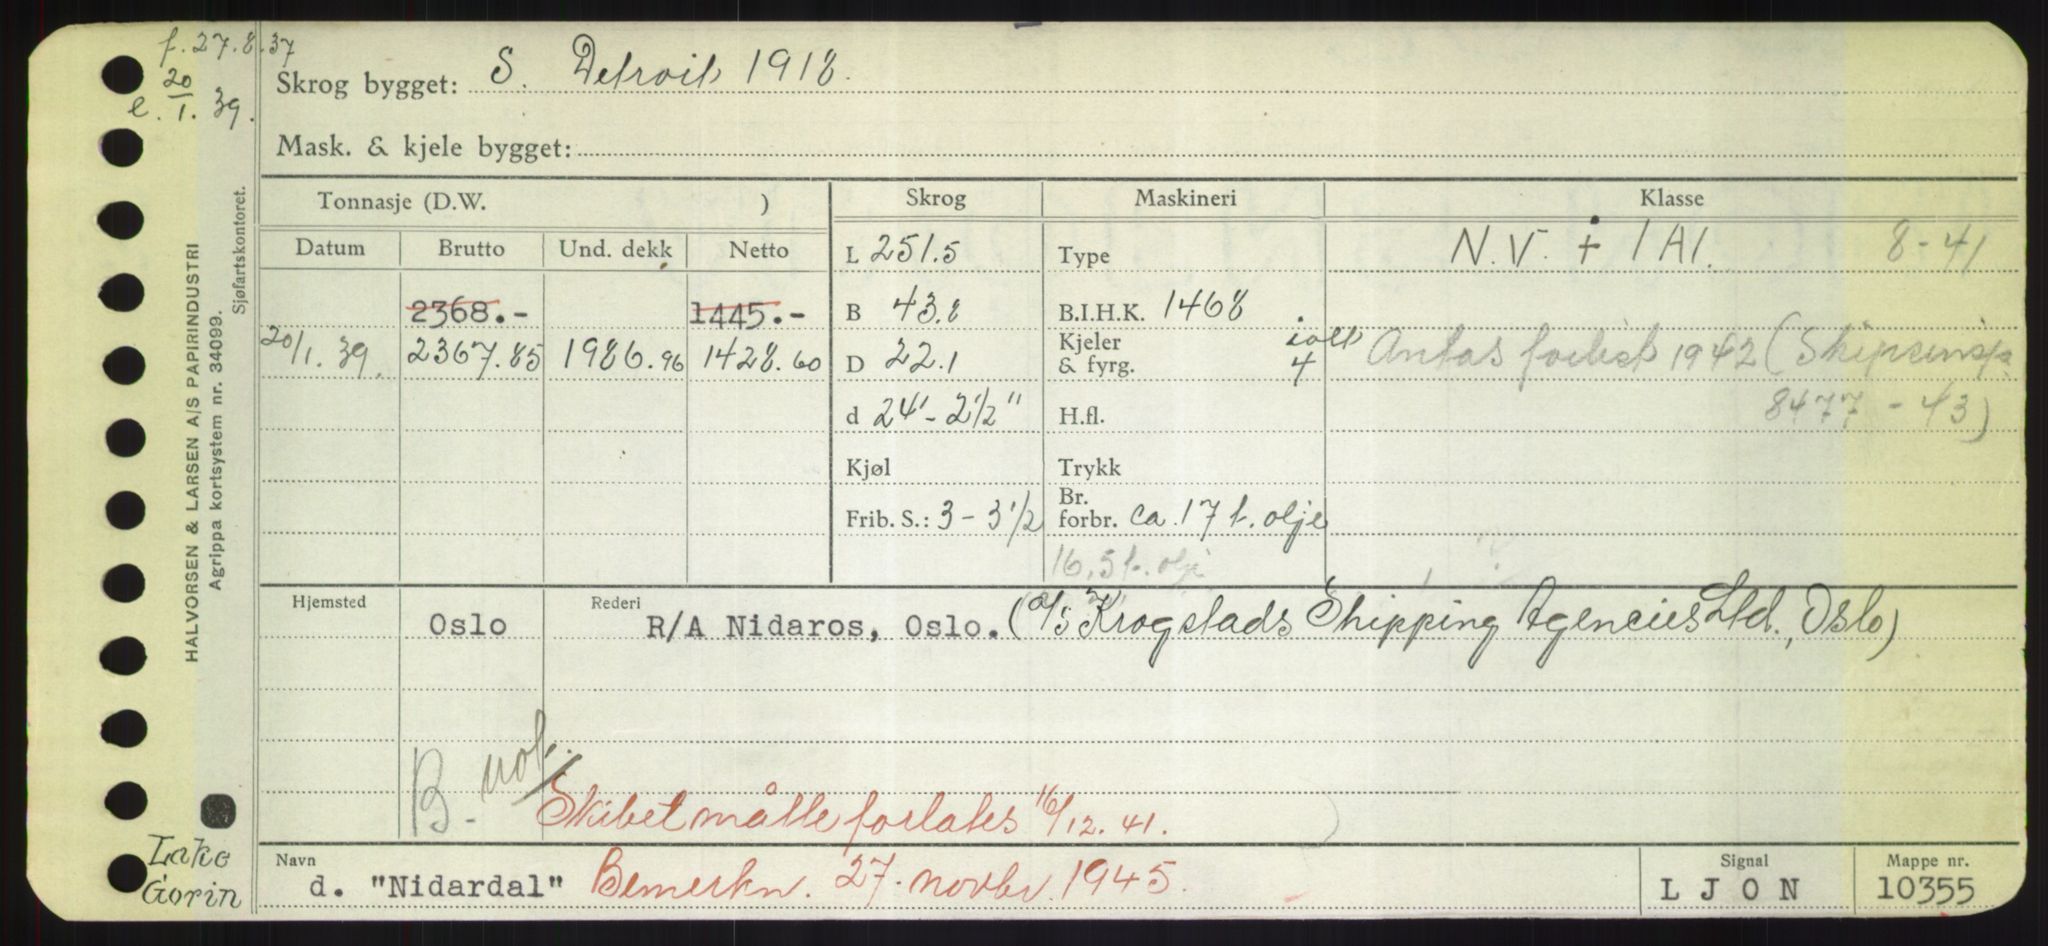 f. 27.8.37
e. 20/1. 39.
Skrog bygget: S. Detroit 1918.
Mask. & kjele bygget:
HALVORSEN & LARSEN A/S PAPIRINDUSTRI
Agrippa kortsystem nr. 34099.
Sjøfartskontoret.
Tonnasje (D.W. ) Skrog Maskineri Klasse
Datum Brutto Und. dekk Netto L 251.5 Type N.V. + 1A1. 8-41
2368.- 1445.- B 43.8 B.I.H.K. 1468
20/1. 39. 2367.85 1986.96 1428.60 D 22.1 Kjeler & fyrg. 4 Antas forlist 1942 (Skipsinsp.
d 24'-2½" H.fl. 8477-43)
Kjøl Trykk
Frib. S.: 3-3½ Br. forbr. ca. 17 t. olje
16,5 t. olje
Hjemsted Oslo Rederi R/A Nidaros, Oslo. (A/S Krogstads Shipping Agencies Ltd., Oslo)
B.
Skibet måtte forlates 16/12. 41.
Lake Gorin
Navn d. "Nidardal" Bemerkn. 27. novbr. 1945. Signal LJON Mappe nr. 10355